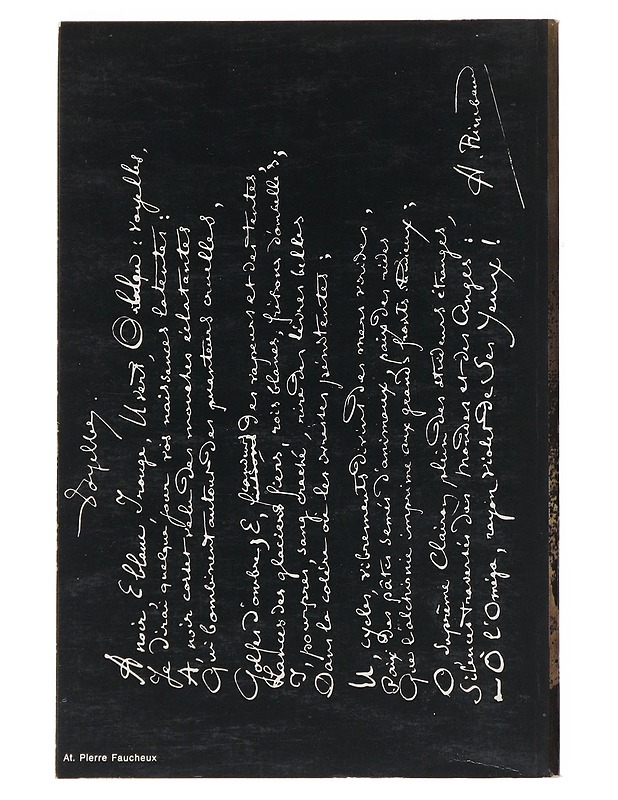 Voyelles.
A noir, E blanc, I rouge, U vert, O bleu : voyelles,
Je dirai quelque jour vos naissances latentes :
A, noir corset velu des mouches éclatantes
Qui bombinent autour des puanteurs cruelles,
Golfes d'ombre ; E, des vapeurs et des tentes,
Lances des glaciers fiers, rois blancs, frissons d'ombelles ;
I, pourpres, sang craché, rire des lèvres belles
Dans la colère ou les ivresses pénitentes ;
U, cycles, vibrements divins des mers virides,
Paix des pâtis semés d'animaux, paix des rides
Que l'alchimie imprime aux grands fronts studieux ;
O, suprême Clairon plein des strideurs étranges,
Silences traversés des Mondes et des Anges :
— O l'Oméga, rayon violet de Ses Yeux !
A. Rimbaud
At. Pierre Faucheux